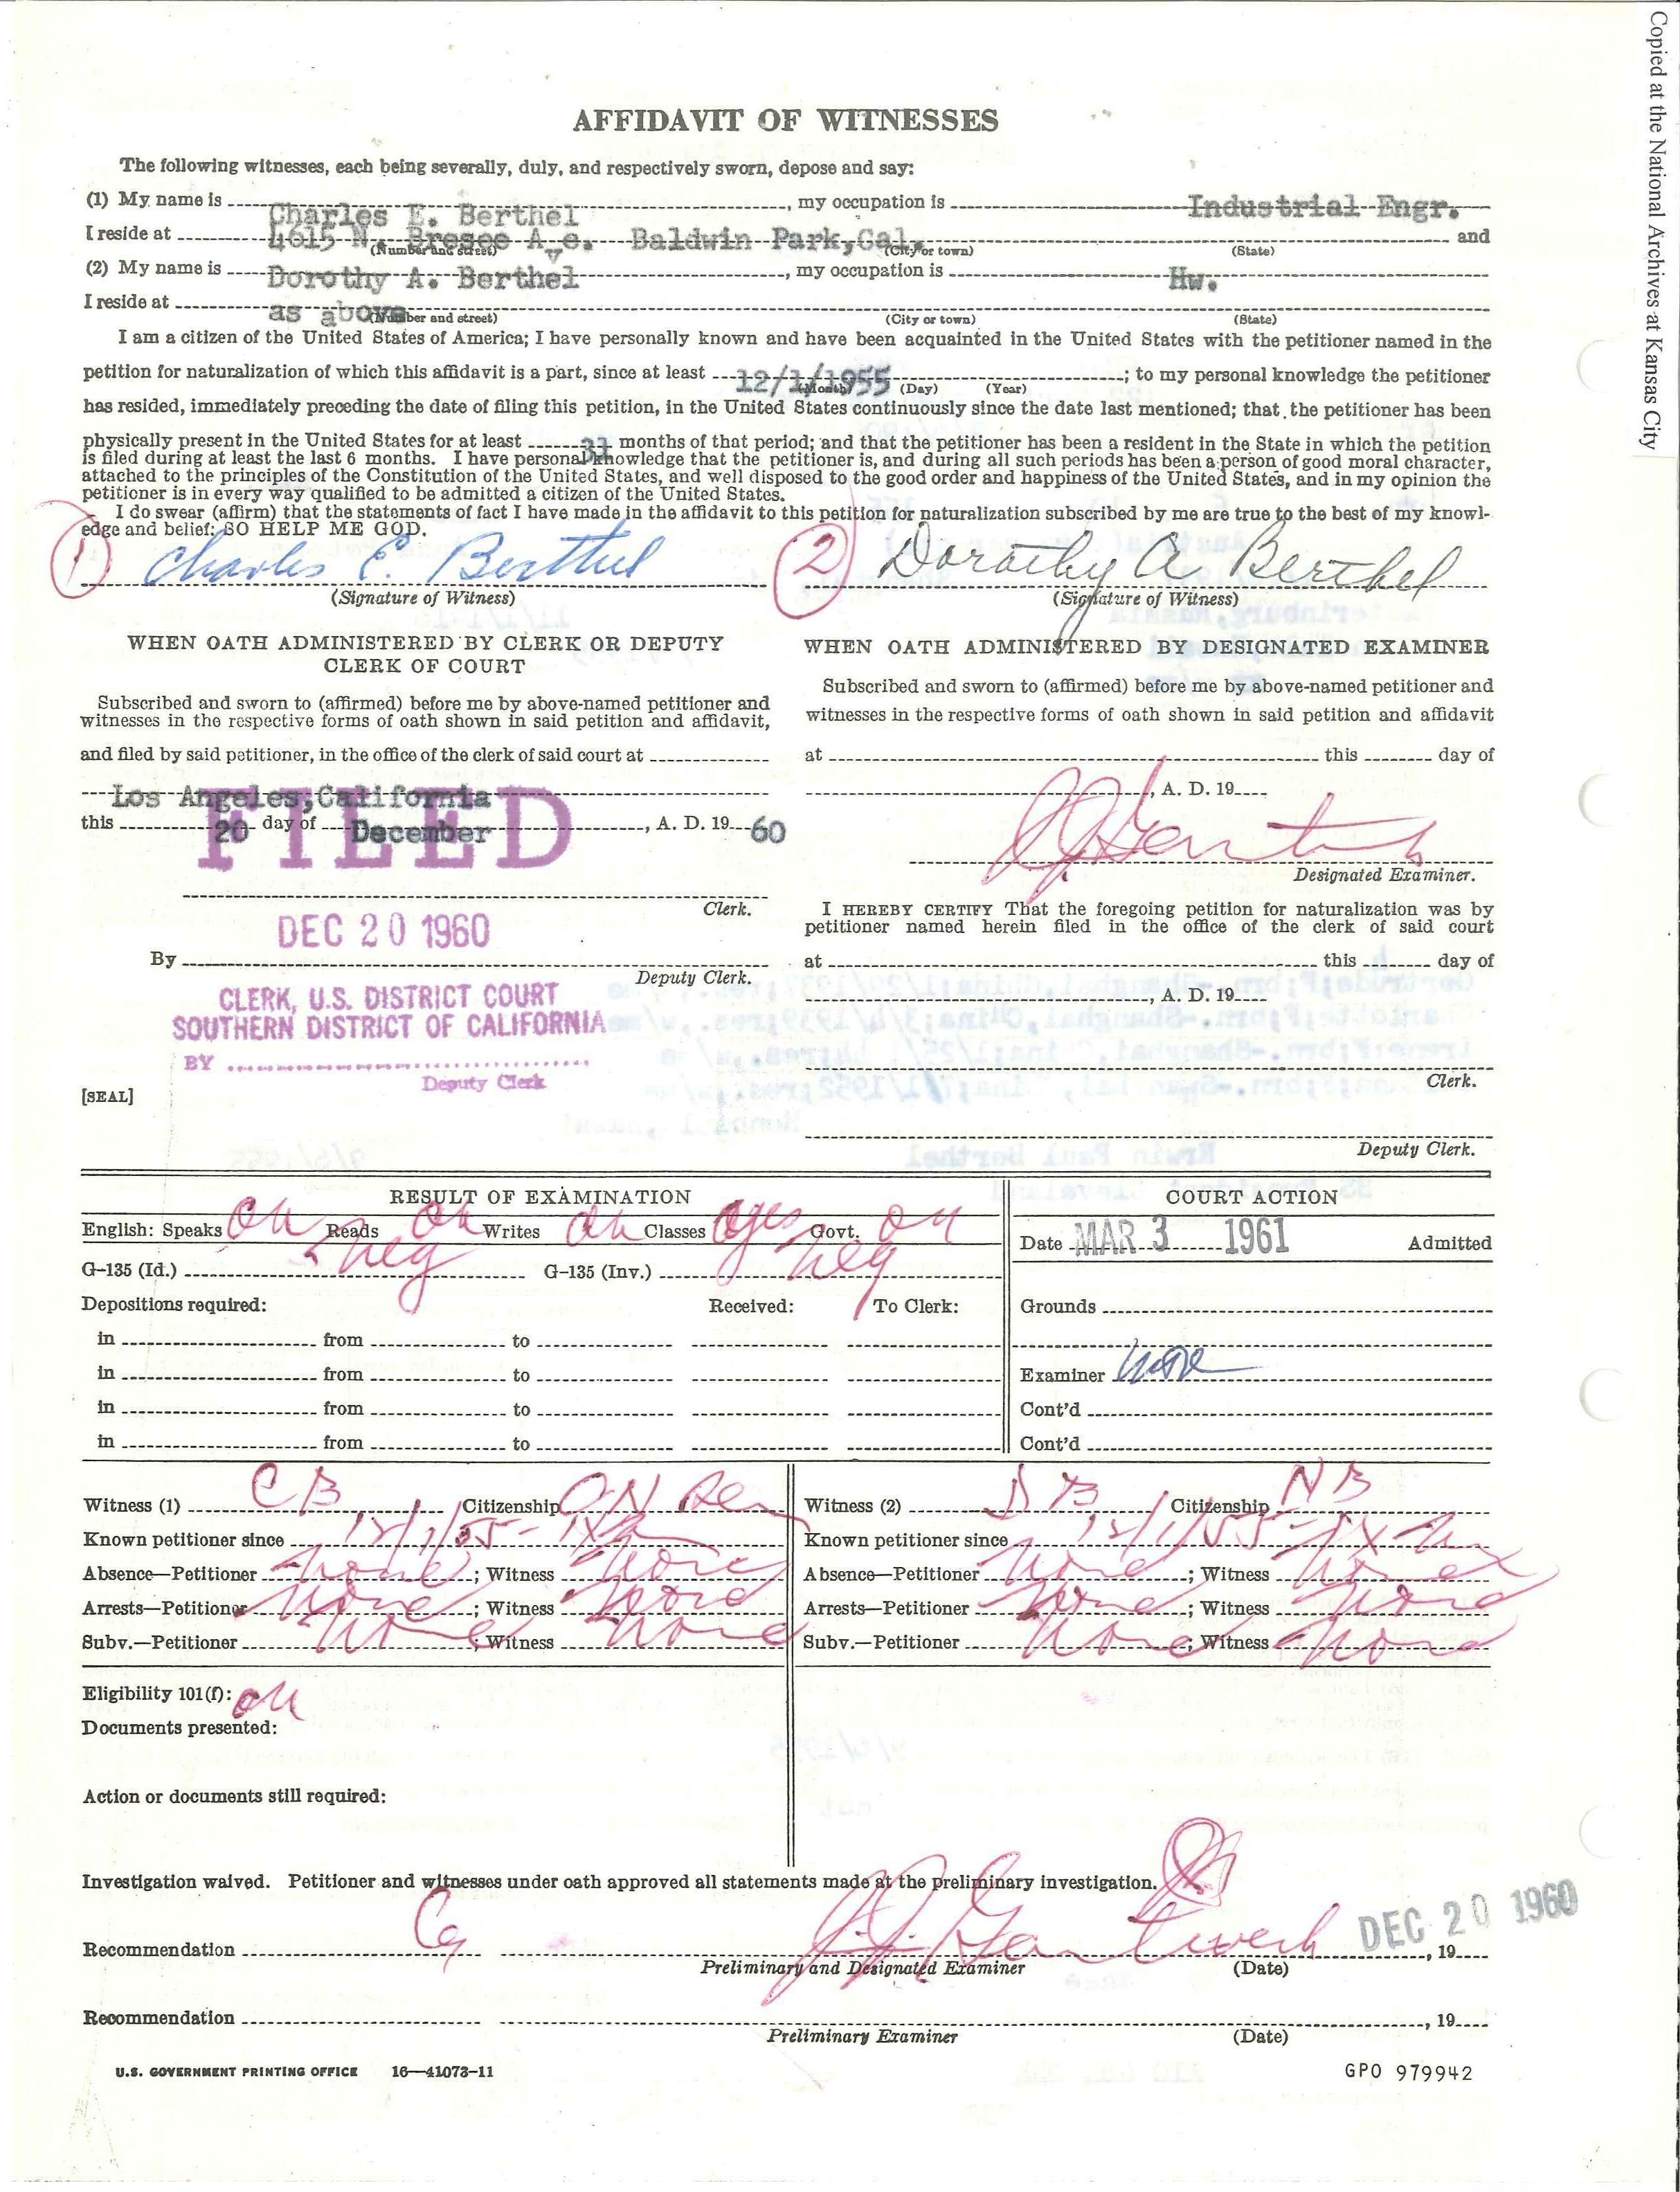 Copied at the National Archives at Kansas City
AFFIDAVIT OF WITNESSES
The following witnesses, each being severally, duly, and respectively sworn, depose and say:
(1) My name is Charles E. Berthel, my occupation is Industrial Engr.
I reside at 4615 N. Bresee Ave. Baldwin Park, Cal. and
(Number and street) (City or town) (State)
(2) My name is Dorothy A. Berthel, my occupation is Hw.
I reside at as above
(Number and street) (City or town) (State)
I am a citizen of the United States of America; I have personally known and have been acquainted in the United States with the petitioner named in the
petition for naturalization of which this affidavit is a part, since at least 12/1/1955; to my personal knowledge the petitioner
(Month) (Day) (Year)
has resided, immediately preceding the date of filing this petition, in the United States continuously since the date last mentioned; that the petitioner has been
physically present in the United States for at least months of that period; and that the petitioner has been a resident in the State in which the petition
is filed during at least the last 6 months. I have personal knowledge that the petitioner is, and during all such periods has been a person of good moral character,
attached to the principles of the Constitution of the United States, and well disposed to the good order and happiness of the United States, and in my opinion the
petitioner is in every way qualified to be admitted a citizen of the United States.
I do swear (affirm) that the statements of fact I have made in the affidavit to this petition for naturalization subscribed by me are true to the best of my knowl-
edge and belief: SO HELP ME GOD.
1 Charles E. Berthel 2 Dorothy A Berthel
(Signature of Witness) (Signature of Witness)
WHEN OATH ADMINISTERED BY CLERK OR DEPUTY
CLERK OF COURT
Subscribed and sworn to (affirmed) before me by above-named petitioner and
witnesses in the respective forms of oath shown in said petition and affidavit,
and filed by said petitioner, in the office of the clerk of said court at
Los Angeles, California
this 20 day of December, A. D. 19 60
FILED
Clerk.
DEC 20 1960
By
Deputy Clerk.
CLERK, U.S. DISTRICT COURT
SOUTHERN DISTRICT OF CALIFORNIA
BY
Deputy Clerk
[SEAL]
WHEN OATH ADMINISTERED BY DESIGNATED EXAMINER
Subscribed and sworn to (affirmed) before me by above-named petitioner and
witnesses in the respective forms of oath shown in said petition and affidavit
at this day of
, A. D. 19
Designated Examiner.
I HEREBY CERTIFY That the foregoing petition for naturalization was by
petitioner named herein filed in the office of the clerk of said court
at this day of
, A. D. 19
Clerk.
Deputy Clerk.
RESULT OF EXAMINATION
English: Speaks Reads Writes Classes Govt.
G-135 (Id.) neg G-135 (Inv.) neg
Depositions required: Received: To Clerk:
in from to
in from to
in from to
in from to
COURT ACTION
Date MAR 3 1961 Admitted
Grounds
Examiner
Cont'd
Cont'd
Witness (1) C B Citizenship
Known petitioner since 12/1/55
Absence—Petitioner none; Witness none
Arrests—Petitioner none; Witness none
Subv.—Petitioner none; Witness none
Witness (2) D B Citizenship N B
Known petitioner since 12/1/55
Absence—Petitioner none; Witness none
Arrests—Petitioner none; Witness none
Subv.—Petitioner none; Witness none
Eligibility 101(f):
Documents presented:
Action or documents still required:
Investigation waived. Petitioner and witnesses under oath approved all statements made at the preliminary investigation.
Recommendation DEC 20 1960, 19
Preliminary and Designated Examiner (Date)
Recommendation , 19
Preliminary Examiner (Date)
U.S. GOVERNMENT PRINTING OFFICE 16—41073-11 GPO 979942